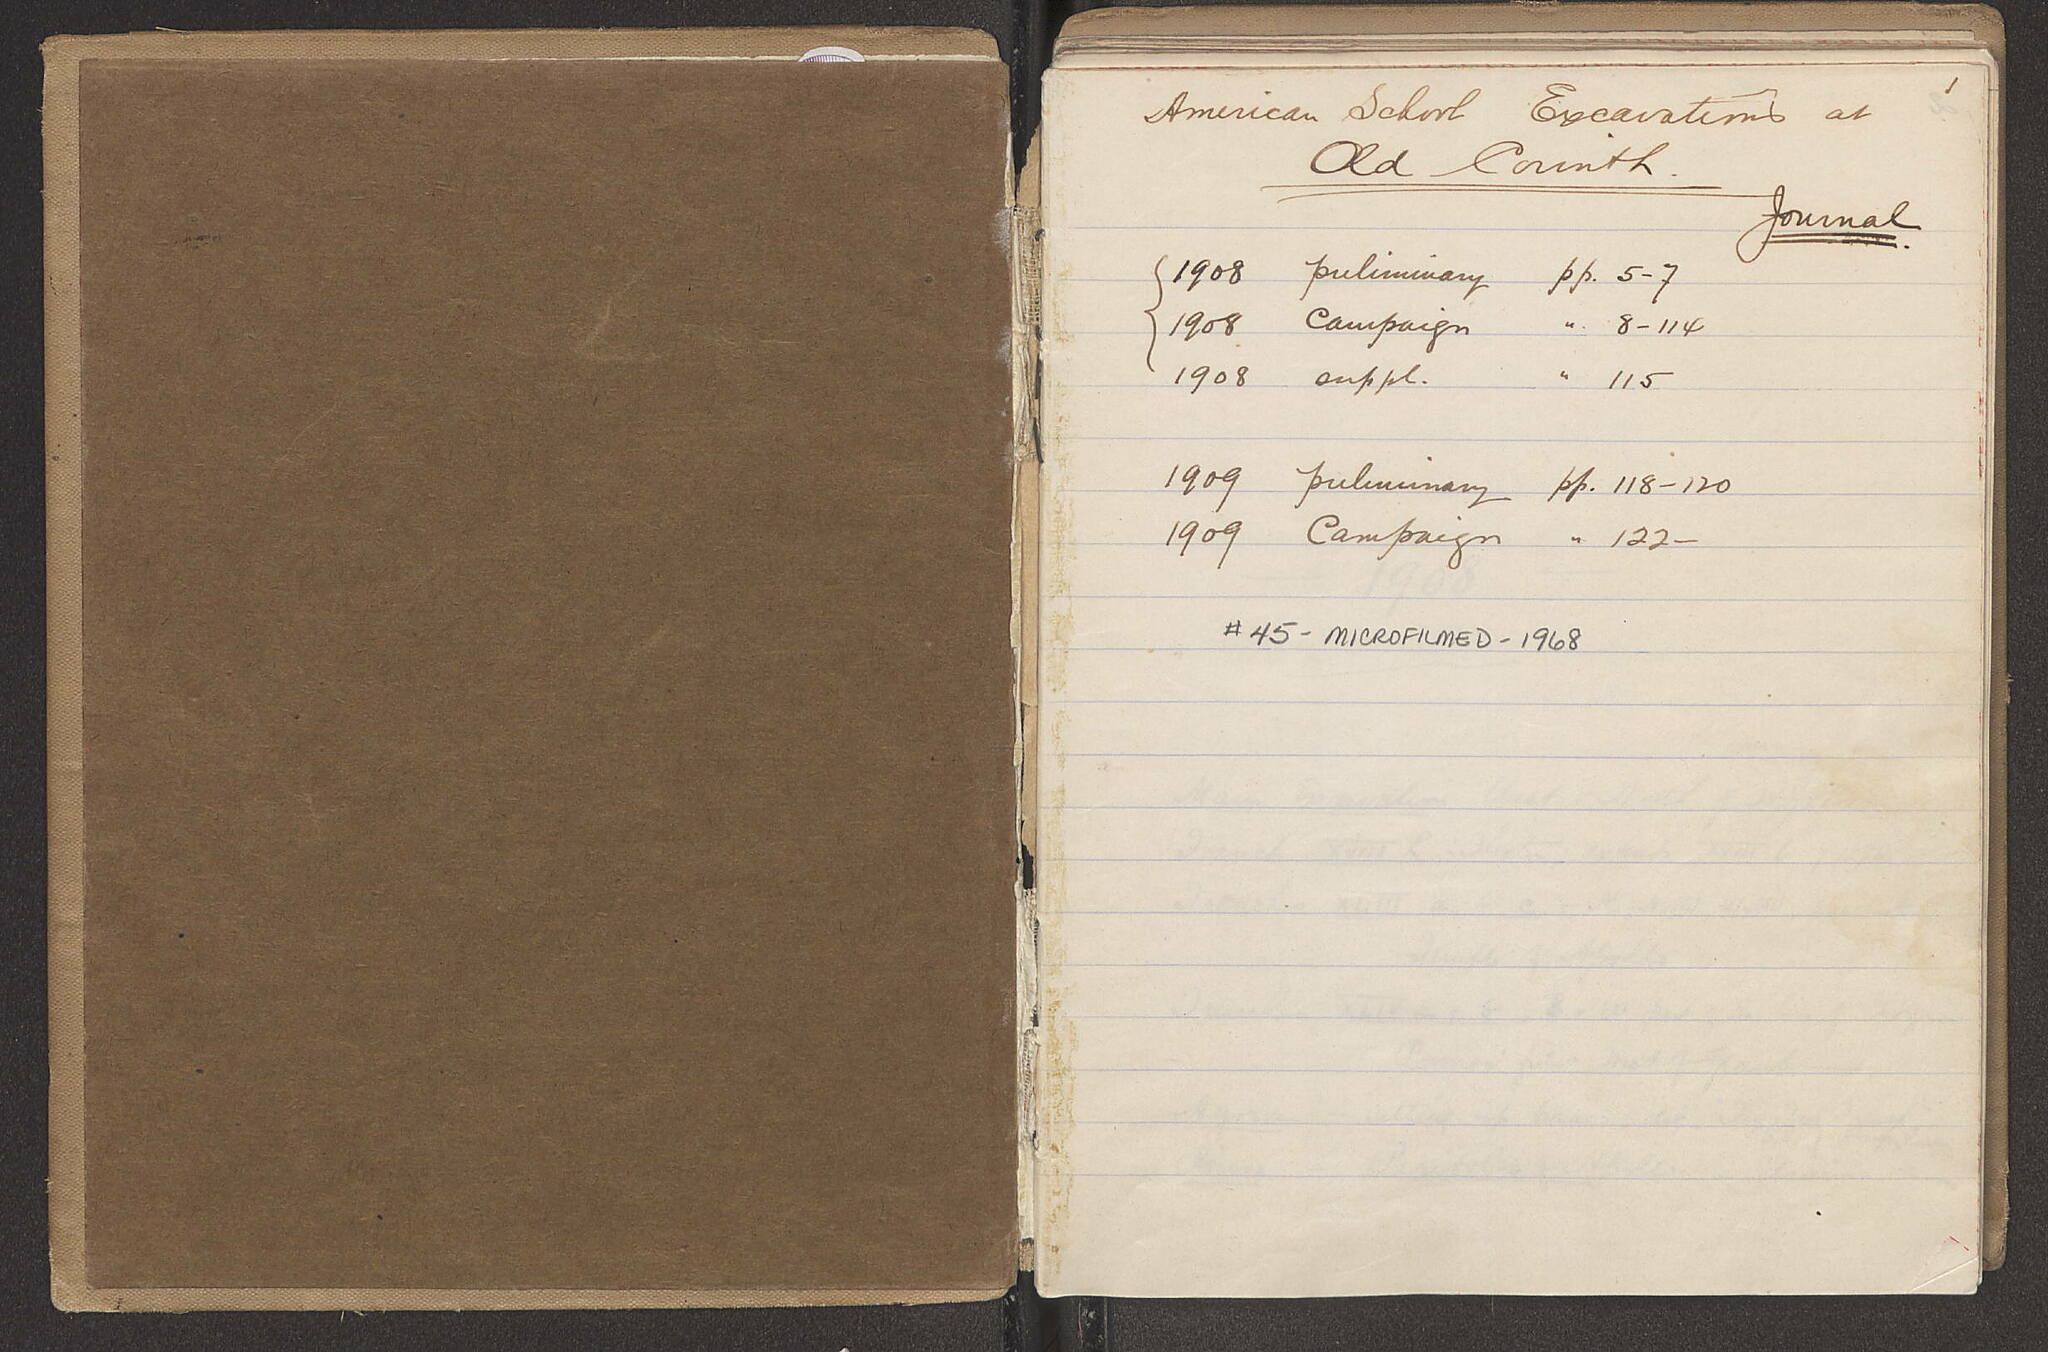 1
American School Excavations at
Old Corinth.
Journal.
1908 preliminary pp. 5-7
1908 Campaign " 8-114
1908 suppl. " 115
1909 preliminary pp. 118-120
1909 Campaign " 122-
# 45 - MICROFILMED - 1968